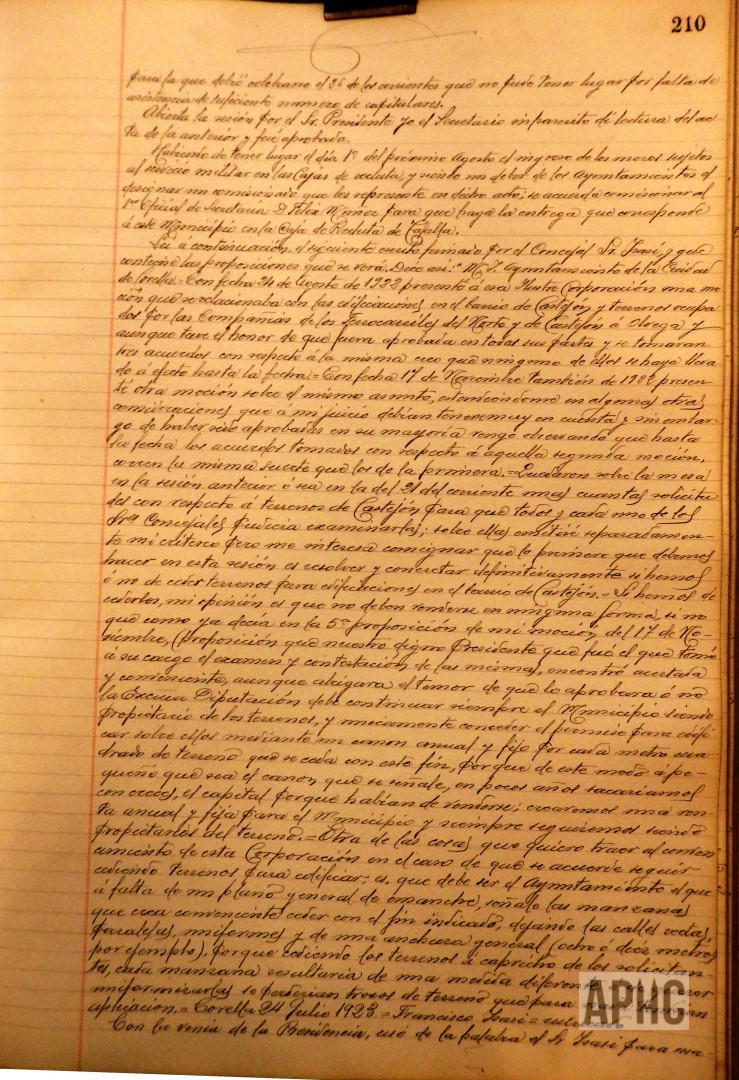 210
para la que debió celebrarse el 26 de los corrientes que no pudo tener lugar por falta de
asistencia de suficiente numero de capitulares.
Abierta la sesión por el Sr. Presidente yo el Secretario infrascrito dí lectura del ac-
ta de la anterior y fué aprobada.
Habiendo de tener lugar el día 1º del próximo Agosto el ingreso de los mozos sujetos
al servicio militar en las Cajas de recluta, y siendo un deber de los Ayuntamientos el
designar un comisionado que les represente en dicho acto; se acuerda comisionar al
1er Oficial de Secretaría D. Felix Muñoz para que haga la entrega que corresponde
á este Municipio en la Caja de Recluta de Tafalla.
Leí a continuación el siguiente escrito firmado por el Concejal Sr. Isasi, y que
contiene las proposiciones que se verá. Dice así: "M. I. Ayuntamiento de la Ciudad
de Corella = Con fecha 24 de Agosto de 1922 presenté á esa Ilustre Corporación una mo-
ción que se relacionaba con las edificaciones en el barrio de Castejón y terrenos ocupa-
dos por las Compañías de los Ferrocarriles del Norte y de Castejón á Olvega y
aunque tuve el honor de que fuera aprobada en todas sus partes y se tomaran
tres acuerdos con respecto á la misma creo que ninguno de ellos se haya lleva-
do á efecto hasta la fecha. = Con fecha 17 de Noviembre también de 1922 presen-
té otra moción sobre el mismo asunto, extendiéndome en algunas otras
consideraciones que á mi juicio debían tenerse muy en cuenta; y sin embar-
go de haber sido aprobadas en su mayoría vengo observando que hasta
la fecha los acuerdos tomados con respecto á aquella segunda moción,
corren la misma suerte que los de la primera. = Quedaron sobre la mesa
en la sesión anterior ó sea en la del 21 del corriente mes cuantas solicitu-
des con respecto á terrenos de Castejón para que todos y cada uno de los
Sres Concejales pudiera examinarlas; sobre ellas emitiré separadamen-
te mi criterio pero me interesa consignar que lo primero que debemos
hacer en esta sesión es resolver y concretar definitivamente si hemos
ó no de ceder terrenos para edificaciones en el barrio de Castejón. = Si hemos de
cederlos, mi opinión es que no deben venderse en ninguna forma, si no
que como ya decía en la 5ª proposición de mi moción, del 17 de No-
viembre, (proposición que nuestro digno Presidente que fué el que tomó
á su cargo el examen y contestación de las mismas, encontró acertada
y conveniente, aunque abrigara el temor de que lo aprobara ó no
la Excma Diputación debe continuar siempre el Municipio siendo
propietario de los terrenos, y unicamente conceder el permiso para edifi-
car sobre ellos mediante un canon anual y fijo por cada metro cua-
drado de terreno que se ceda con este fin, porque de este modo á pe-
queño que sea el canon que se señale, en pocos años sacaríamos
con creces, el capital porque habían de venderse; crearemos una ren-
ta anual y fija para el Municipio y siempre seguiremos siendo
propietarios del terreno. = Otra de las cosas que quiero traer al conoci-
miento de esta Corporación en el caso de que se acuerde seguir
cediendo terrenos para edificar; es que debe ser el Ayuntamiento el que
á falta de un plano general de ensanche, señale las manzanas
que crea conveniente ceder con el fin indicado, dejando las calles rectas,
paralelas, uniformes y de una anchura general (ocho ó diez metros
por ejemplo), porque cediendo los terrenos á capricho de los solicitan-
tes, cada manzana resultaria de una medida diferente
uniformizarlas se perderian trozos de terreno que para
aplicación. = Corella 24 Julio 1923 = Francisco Isasi =
Con la venia de la Presidencia, usó de la palabra el Sr. Isasi para ma-
APHC